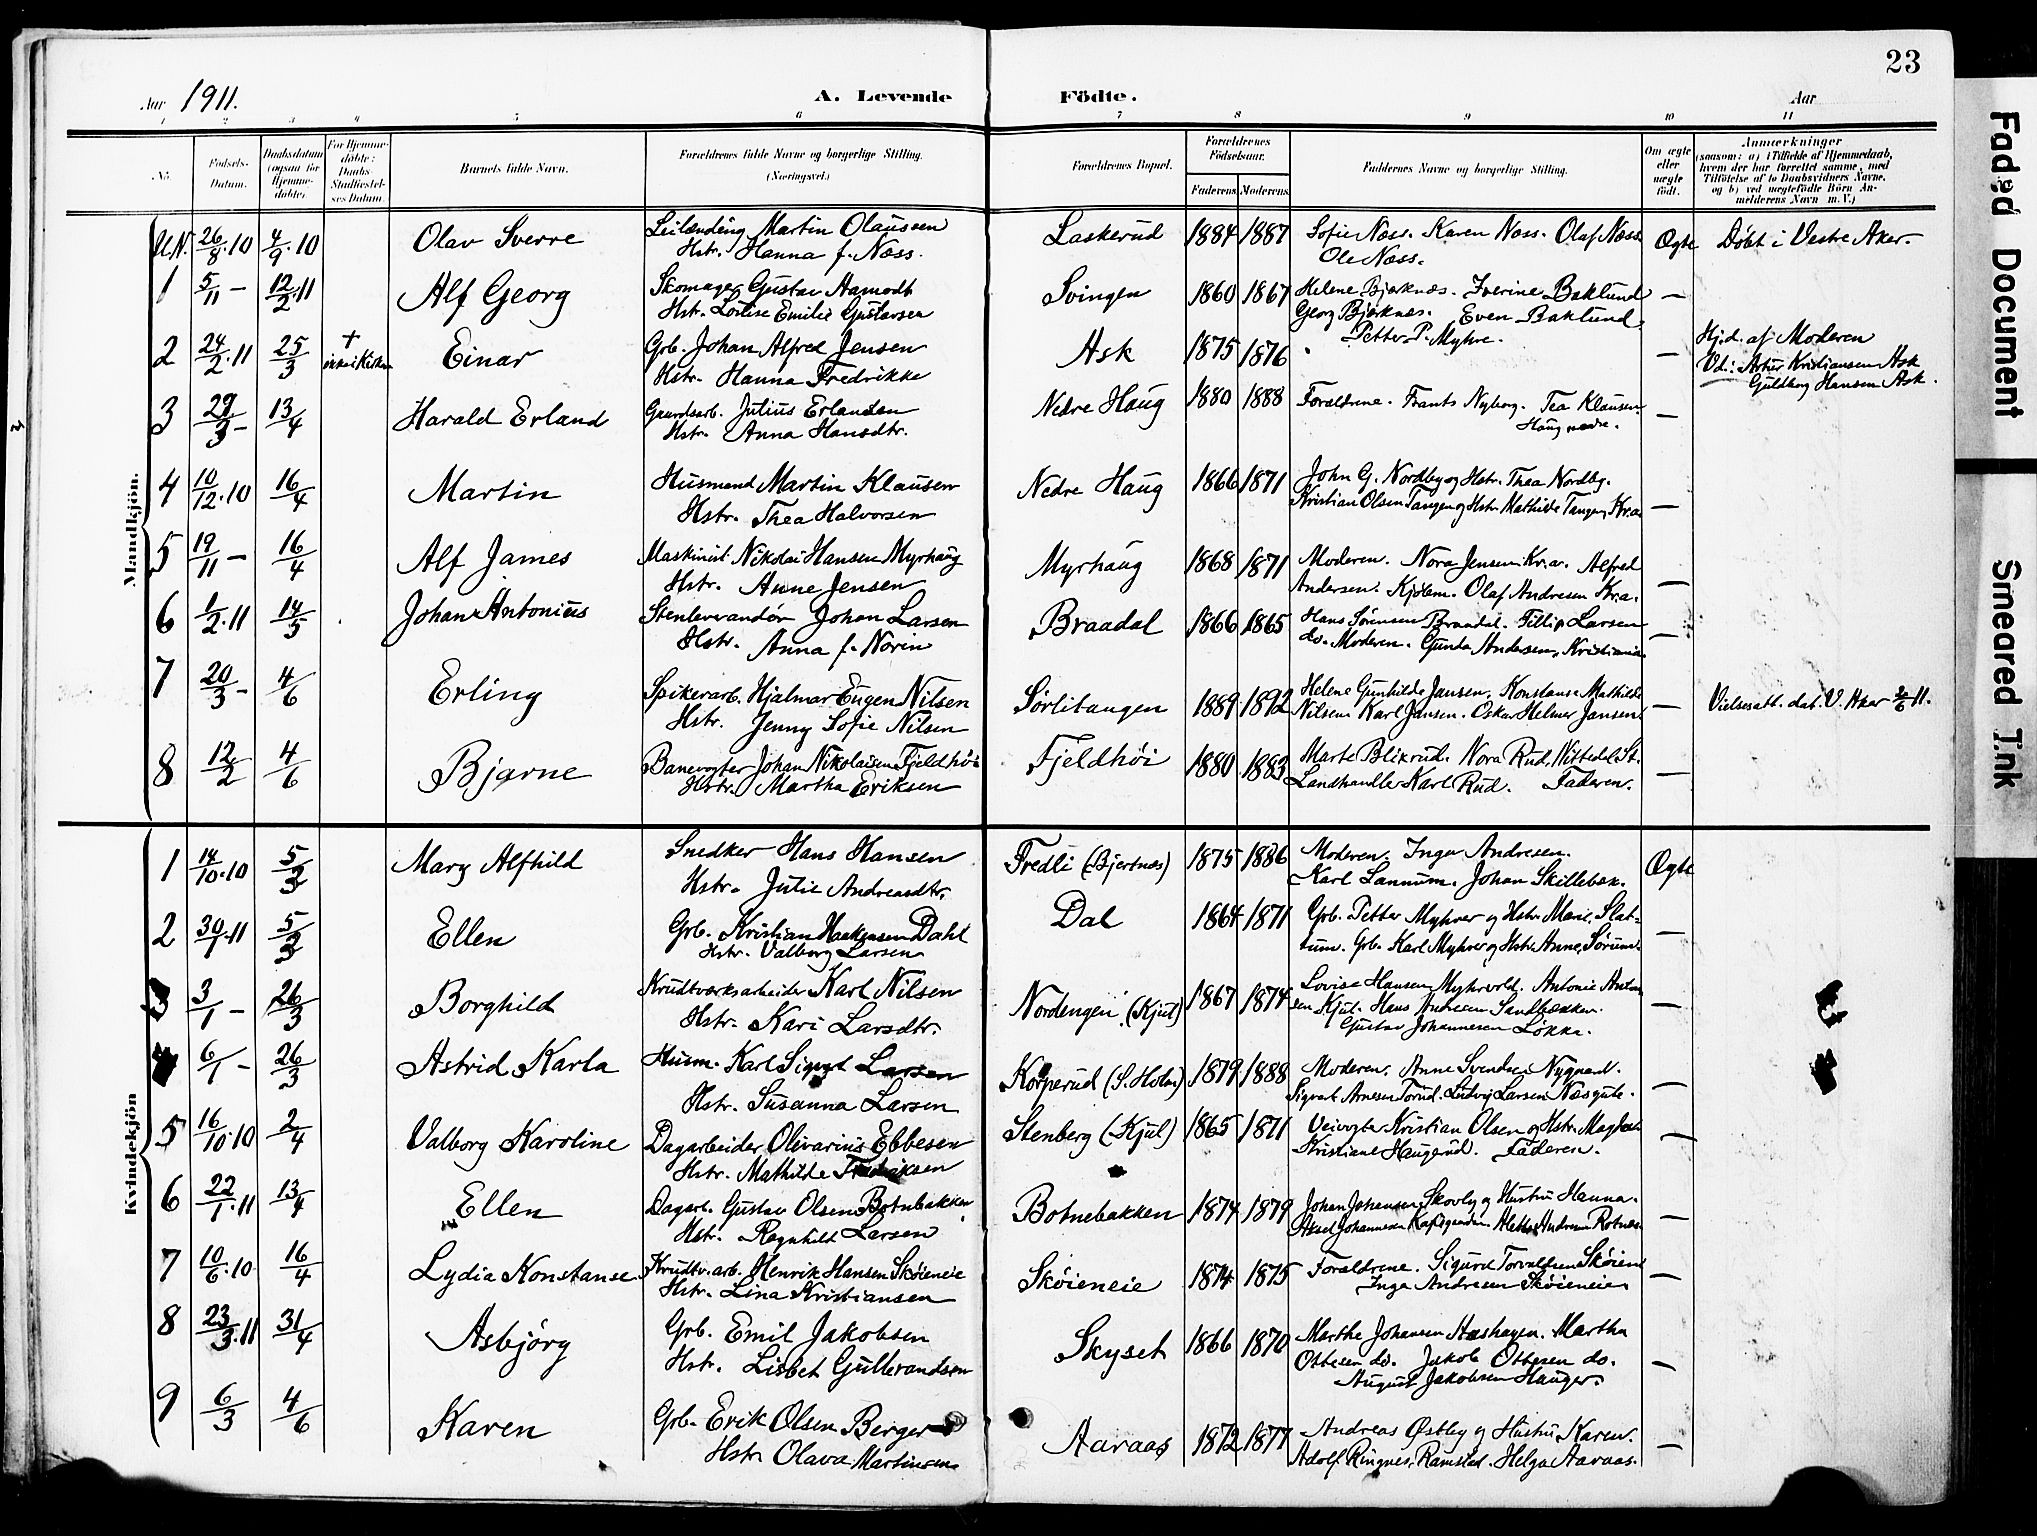 23
Aar 1911. A. Levende Födte. Aar
1 2 3 4 5 6 7 8 9 10 11
No. Fødsels-Datum. Daabsdatum (ogsaa for Hjemmedøbte). For Hjemmedøbte: Daabs-Stadfæstelses Datum. Barnets fulde Navn. Forældrenes fulde Navne og borgerlige Stilling. (Næringsvei.) Forældrenes Bopæl. Forældrenes Fødselsaar. Faderens. Moderens. Faddernes Navne og borgerlige Stilling. Om ægte eller uægte født. Anmærkninger (saasom: a) i Tilfælde af Hjemmedaab, hvem der har forrettet samme, med Tilføielse af to Daabsvidners Navne, og b) ved uægtefødte Børn Anmelderens Navn m. V.)
Mandkjön.
U.N. 26/8.10 4/9.10 Olav Sverre Leilænding Martin Olaussen Laskerud 1884 1887 Sofie Næss. Karen Næss. Olaf Næss Ægte Døbt i Vestre Aker.
Hstr. Hanna f. Næss. Ole Næss.
1 5/11 — 12/2.11 Alf Georg Skomager Gustav Aamodt Svingen 1860 1867 Helene Bjerknæs. Iverine Baklund —
Hstr. Lovise Emilie Gustavsen Georg Bjerknæs. Even Baklund.
2 24/2.11 25/3 + Einar Grb. Johan Alfred Jensen Ask 1875 1876 Petter P. Myhre. — Hj.d. af Moderen
Hstr. Hanna Fredrikke Vd.: Artur Kristiansen Ask
Guldborg Hansen Ask.
3 29/3 — 13/4 Harald Erland Gaardsarb. Julius Erlandsen Nedre Haug 1880 1888 Forældrene. Frants Nyborg. Tea Klausen —
Hstr. Anna Hansdtr. Haug nedre.
4 10/12.10 16/4 Martin Husmand Martin Klausen Nedre Haug 1866 1871 John G. Nordby og Hstr. Thea Nordby.
Hstr. Thea Halvorsen Kristian Olsen Tangen og Hstr. Mathilde Tangen, Kr.a. —
5 19/11 — 16/4 Alf James Maskinist Nikolai Hansen Myrhaug Myrhaug 1868 1871 Moderen. Nora Jensen Kr.a. Alfred
Hstr. Anne Jensen Andersen. Olaf Andresen Kr.a. —
6 1/2.11 14/5 Johan Antonius Stenleverandør Johan Larsen Braadal 1866 1865 Hans Sørensen Braadal. Fillip Larsen
Hstr. Anna f. Norin do. Moderen. Gunda Andersen, Kristiania —
7 20/3 — 4/6 Erling Spikerarb. Hjalmar Eugen Nilsen Sørlitangen 1889 1892 Helene Gunhilde Jansen. Konstanse Mathilde
Hstr. Jenny Sofie Nilsen Nilsen. Karl Jansen. Oskar Helmer Jansen. — Vielsesatt. dat. V. Aker 2/6 11.
8 12/2 4/6 Bjarne Banevogter Johan Nikolaisen Fjeldhöi Fjeldhöi 1880 1883 Marte Blikrud. Nora Rud, Nittedal St.
Hstr. Martha Eriksen Landhandler Karl Rud. Faderen. —
Kvindekjön
1 14/10.10 5/3 Mary Alfhild Snedker Hans Hansen Fredli (Bjertnæs) 1875 1886 Moderen. Inga Andresen. Ægte
Hstr. Julie Andreasdtr. Karl Lannum. Johan Skillebæk.
2 30/1.11 5/3 Ellen Grb. Kristian Haakensen Dahl Dal 1864 1871 Grb. Petter Myhrer og Hstr. Marie, Slat-
Hstr. Valborg Larsen tum. Grb. Karl Myhrer og Hstr. Anne, Sørum. —
3 3/1 — 26/3 Borghild Krudtværksarbeider Karl Nilsen Nordengen (Kjul) 1867 1874 Lovise Hansen Myhrvold. Antonie Anton
Hstr. Kari Larsdtr. sen Kjul. Hans Andresen Sandbakken. —
Gustav Johannesen Løkka.
6/1 — 26/3 Astrid Karla Husm. Karl Sigvart Larsen Korperud (S. Holm) 1879 1888 Moderen. Anne Svendsen Nygaard.
Hstr. Susanna Larsen Sigvart Arnesen Torud. Ludvig Larsen —
5 16/10.10 2/4 Valborg Karoline Dagarbeider Olivarius Ebbesen Stenberg (Kjul) 1865 1871 Veivogter Kristian Olsen og Hstr.
Hstr. Mathilde Fredriksen Kristiane Haugerud. Faderen. —
6 22/1.11 13/4 Ellen Dagarb. Gustav Olsen Botnebakken Botnebakken 1874 1879 Johan Johansen Skovly og Hustru Hanna.
Hstr. Ragnhild Larsen Aksel Johannesen —
7 10/6.10 16/4 Lydia Konstanse Krudtv.arb. Henrik Hansen Skøieneie Skøieneie 1874 1875 Forældrene. Sigurd Torvaldsen Skøien
Hstr. Lina Kristiansen Inga Andresen Skøieneie —
8 23/3.11 31/4 Asbjörg Grb. Emil Jakobsen Skyset 1866 1870 Marthe Johansen Aashagen. Martha
Hstr. Lisbet Gulbrandsen Ottesen do. Jakob Ottesen do. —
August Jakobsen Hauger.
9 6/3 4/6 Karen Grb. Erik Olsen Berger Aaraas 1872 1877 Andreas Østby og Hustru Karen.
Hstr. Olava Martinsen Adolf Ringnes, Ramstad. Helga Aaraas. —
Faded Document
Smeared Ink